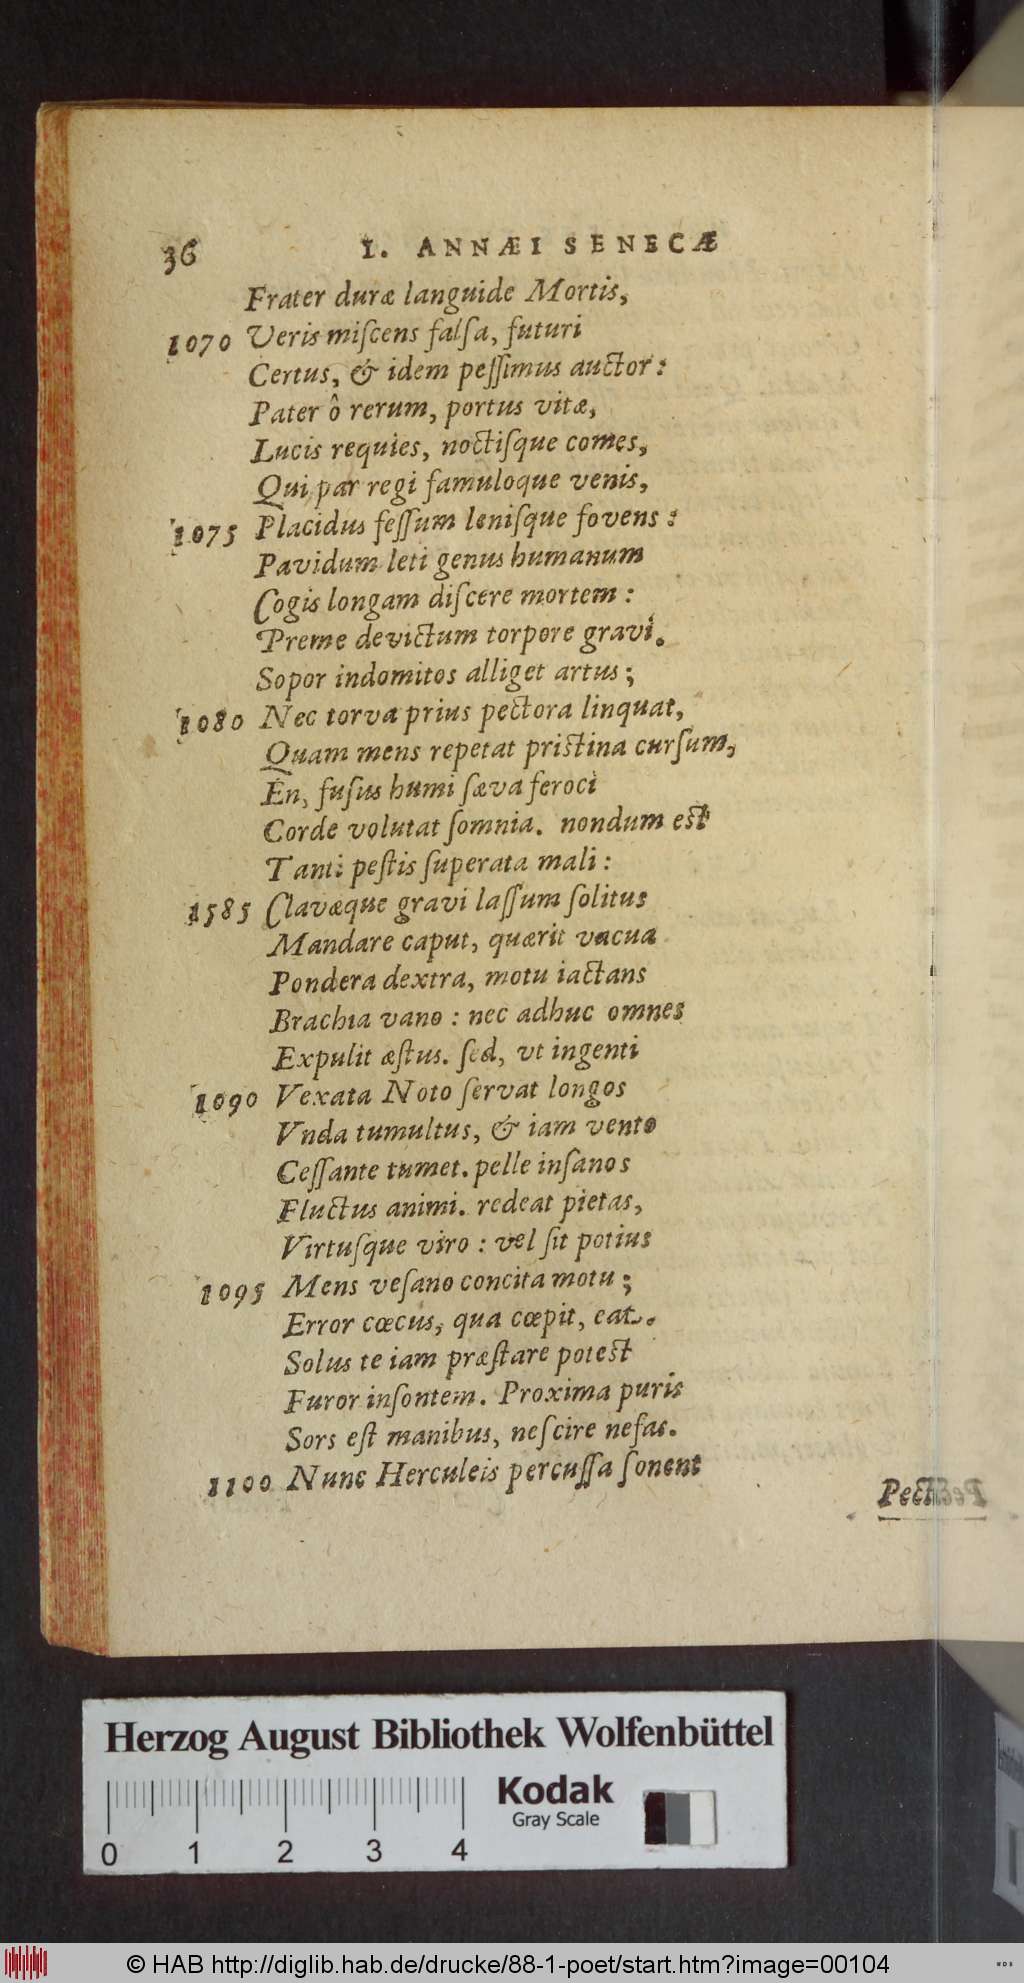 36 I. ANNÆI SENECÆ
Frater duræ languide Mortis,
1070 Veris miſcens falſa, futuri
Certus, & idem peſſimus auctor:
Pater ô rerum, portus vitæ,
Lucis requies, noctiſque comes,
Qui par regi famuloque venis,
1075 Placidus feſſum leniſque fovens:
Pavidum leti genus humanum
Cogis longam diſcere mortem:
Preme devictum torpore gravi.
Sopor indomitos alliget artus;
1080 Nec torva prius pectora linquat,
Quam mens repetat pristina curſum,
En, fuſus humi ſæva feroci
Corde volutat ſomnia. nondum est
Tanti peſtis ſuperata mali:
1585 Clavæque gravi laſſum ſolitus
Mandare caput, quærit vacua
Pondera dextra, motu iactans
Brachia vano: nec adhuc omnes
Expulit æſtus. ſed, vt ingenti
1090 Vexata Noto ſervat longos
Vnda tumultus, & iam vento
Ceſſante tumet. pelle inſanos
Fluctus animi. redeat pietas,
Virtuſque viro: vel ſit potius
1095 Mens veſano concita motu;
Error cœcus, qua cœpit, eat.
Solus te iam præſtare potest
Furor inſontem. Proxima puris
Sors eſt manibus, neſcire nefas.
1100 Nunc Herculeis percuſſa ſonent
Pect
Herzog August Bibliothek Wolfenbüttel
Kodak
Gray Scale
0 1 2 3 4
© HAB http://diglib.hab.de/drucke/88-1-poet/start.htm?image=00104